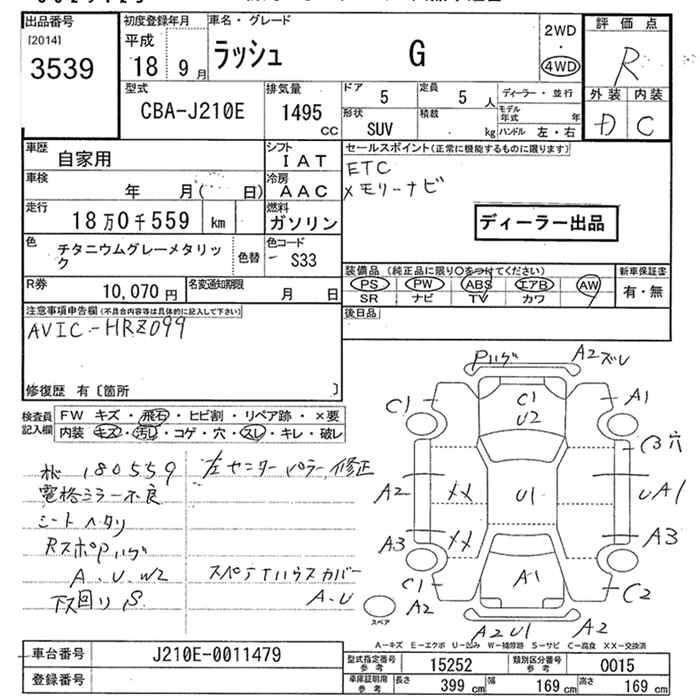 出品番号
[2014]
3539
初度登録年月
平成
18 9月
車名・グレード
ラッシュ G
2WD
・
4WD
評価点
R
外装 内装
D C
型式
CBA-J210E
排気量
1495 cc
ドア
5
定員
5 人
形状
SUV
積載
kg
ディーラー・並行
モデル年式 年
ハンドル 左・右
車歴
自家用
シフト
IAT
車検
年 月( 日)
冷房
AAC
走行
18万0千559 km
燃料
ガソリン
色
チタニウムグレーメタリック
色替
色コード
S33
R券
10,070円
名変通知期限
月 日
セールスポイント(正常に機能するものに限ります)
ETC
メモリーナビ
ディーラー出品
装備品(純正品に限り〇をつけてください)
PS PW ABS エアB AW
SR ナビ TV カワ
新車保証書
有・無
後日品
注意事項申告欄(不具合内容等は具体的に記入して下さい)
AVIC-HRZ099
修復歴 有〔箇所 〕
検査員記入欄
FW キズ・飛石・ヒビ割・リペア跡・×要
内装 キズ・汚れ・コゲ・穴・スレ・キレ・破レ
180559
左センターピラー修正
電格ミラー不良
シートヘタリ
RスポPハゲ
A.U.W2
下回りS
スペアTハウスカバー
A.U
Pハゲ A2ズレ
C1 C1 A1
U2
C3穴
A2 XX U1 UA1
A3 XX A3
C1 A1 C2
A2
スペア
A2U1 A2
A－キズ E－エクボ U－凹み W－補修跡 S－サビ C－腐食 XX－交換済
車台番号
J210E-0011479
登録番号
型式指定番号 参考
15252
類別区分番号 参考
0015
車庫証明用 参考
長さ 399 cm 幅 169 cm 高さ 169 cm